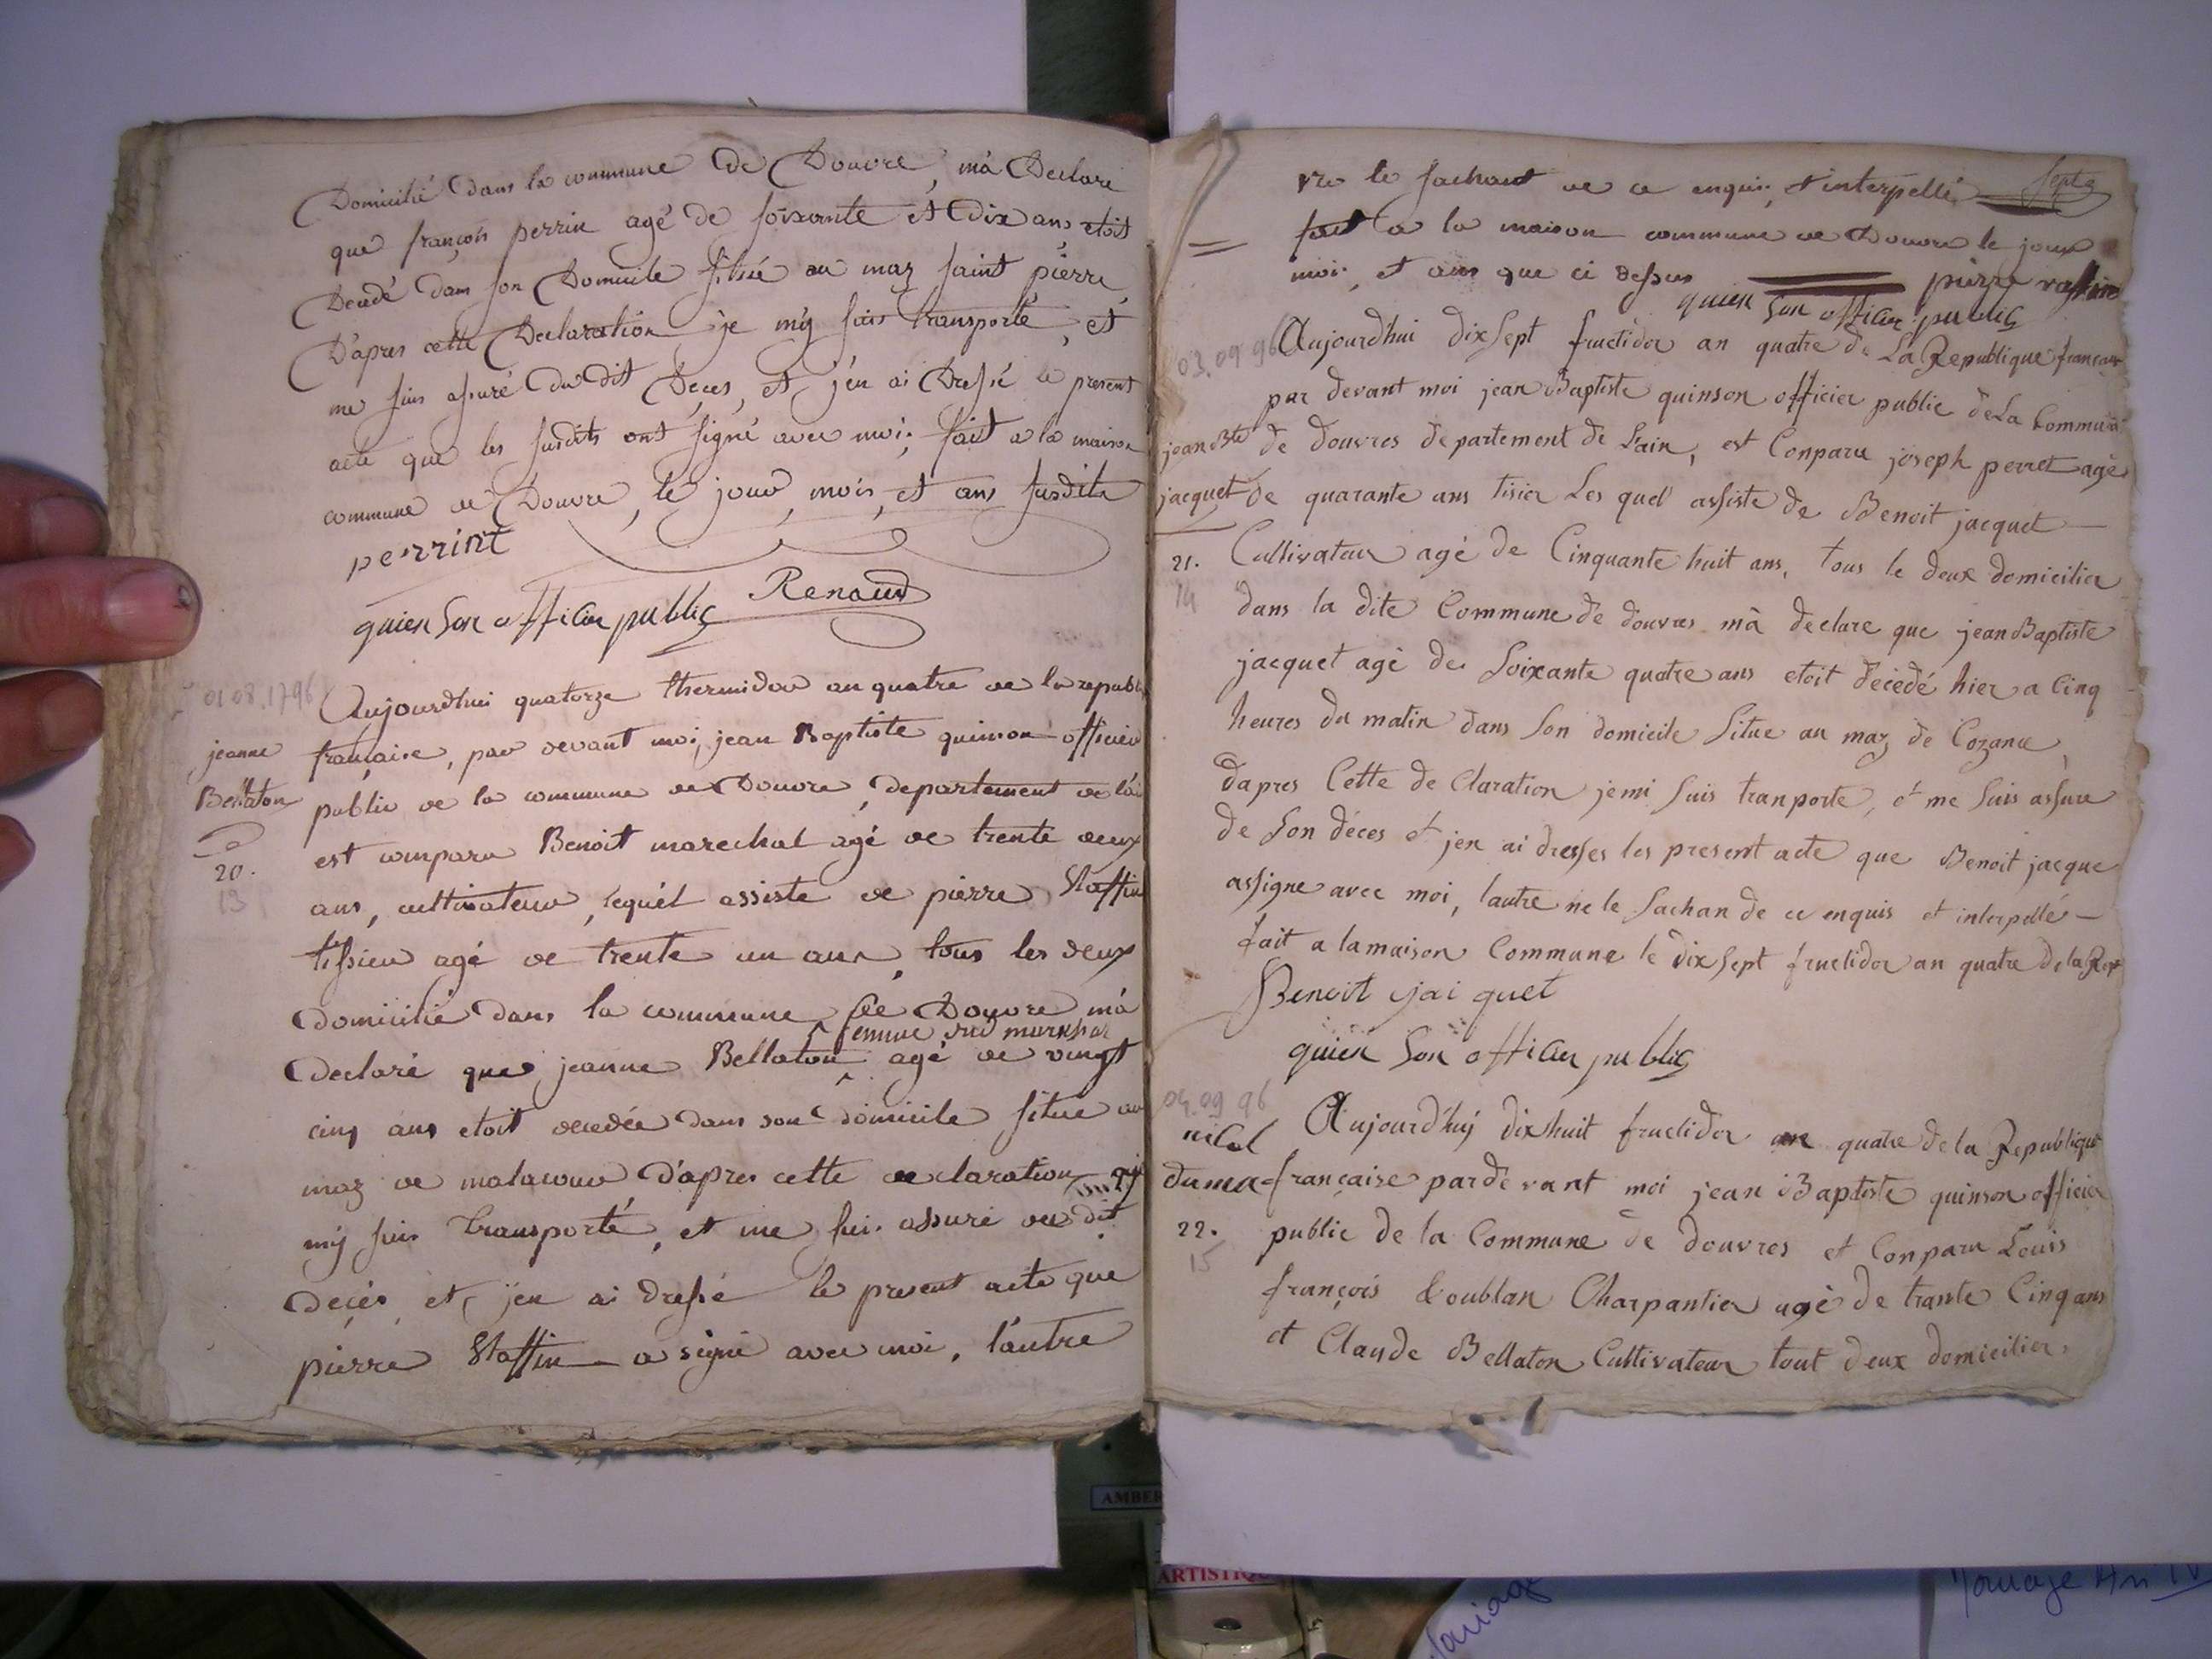 Domicilié dans la commune de Douvre, m'a Declaré
que françois perrin agé de soixante et dix ans etoit
Decedé dans son Domicile situé au maz saint pierre
D'apres cette Declaration je m'y suis transporté, et
me suis assuré du dit Deces, et j'en ai Dressé le present
acte que les susdits ont signé avec moi; fait a la maison
commune de Douvre, le jour, mois, et ans susdits
perrint
Renaud
quienson officier public
01.08.1796
Aujourdhui quatorze thermidor an quatre de la republ
jeanne
française, par devant moi, jean Baptiste quinson officier
Bellaton
public de la commune de Douvre, departement de l'ai
20.
13
est comparu Benoit marechal agé de trente deux
ans, cultivateur, lequel assisté de pierre
tissieu agé de trente un ans, tous les deux
domicilié dans la commune de Douvre m'a
femme dud marechal
declaré que jeanne Bellaton agé de vingt
cinq ans etoit decedée dans son domicile situé au
maz de malacour d'apres cette declaration
m'y suis transporté, et me suis assuré du dit
deces, et j'en ai dressé le present acte que
pierre a signé avec moi, l'autre
septz
ne le sachant de ce enquis, et interpellé
fait a la maison commune de Douvre le jour
moi, et ans que ci dessus pierre
quienson officier public
03.09 96
Aujourdhui dixsept fructidor an quatre de La Republique francaise
par devant moi jean Baptiste quinson officier public de La Commun
jean Bte
de douvres departement de Lain, est Conparu joseph perret agé
jacquet
de quarante ans tisier Les quel assiste de Benoit jacquet
21.
14
Cultivateur agé de Cinquante huit ans, tous le deux domicilier
dans la dite Commune de douvres m'à declare que jean Baptiste
jacquet agé de Soixante quatre ans etoit décedé hier a Cinq
heures du matin dans Son domicile Situe au maz de Cozance,
dapres Cette de Claration jemi Suis tranporte, et me Suis assure
de Son déces et jen ai dresses les present acte que Benoit jacque
assigne avec moi, lautre ne le Sachan de ce enquis et interpellé
fait a lamaison Commune le dixsept fructidor an quatre de la Rep
Benoit jai quet
quienson officier public
04.09 96
Aujourd'huj dixhuit fructidor an quatre de la Republique
française pardevant moi jean Baptiste quinson officier
22.
15
public de la Commune de douvres et Conparu Louis
françois Charpantier agé de trante Cinq ans
et Claude Bellaton Cultivateur tout deux domicilier
AMBER
ARTISTIQ